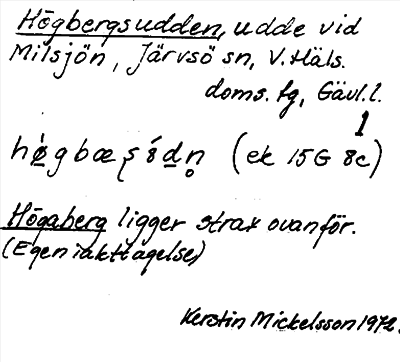 Högbergsudden, udde vid
Milsjön, Järvsö sn, V. Häls.
doms. fg, Gävl. l.
1
hø̀gbæʂśdn̥ (ek 15G 8c)
Högaberg ligger strax ovanför.
(Egen iakttagelse)
Kerstin Mickelsson 1972.